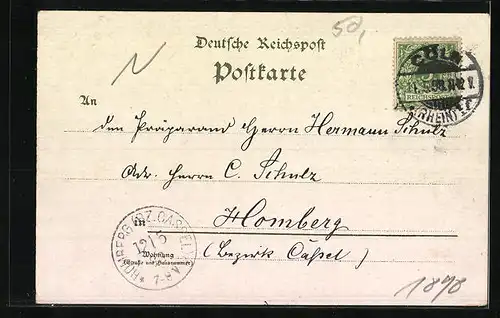 50,
Deutsche Reichspost
Postkarte
CÖLN
(RHEIN)
REICHSPOST
N
An
den Präparand Herrn Hermann Schulz
Adr. Herrn C. Schulz
in Homberg
(Bezirk Cassel)
Wohnung
(Straße und Hausnummer)
HOMBERG (BZ. CASSEL)
12/5
7-8
1898